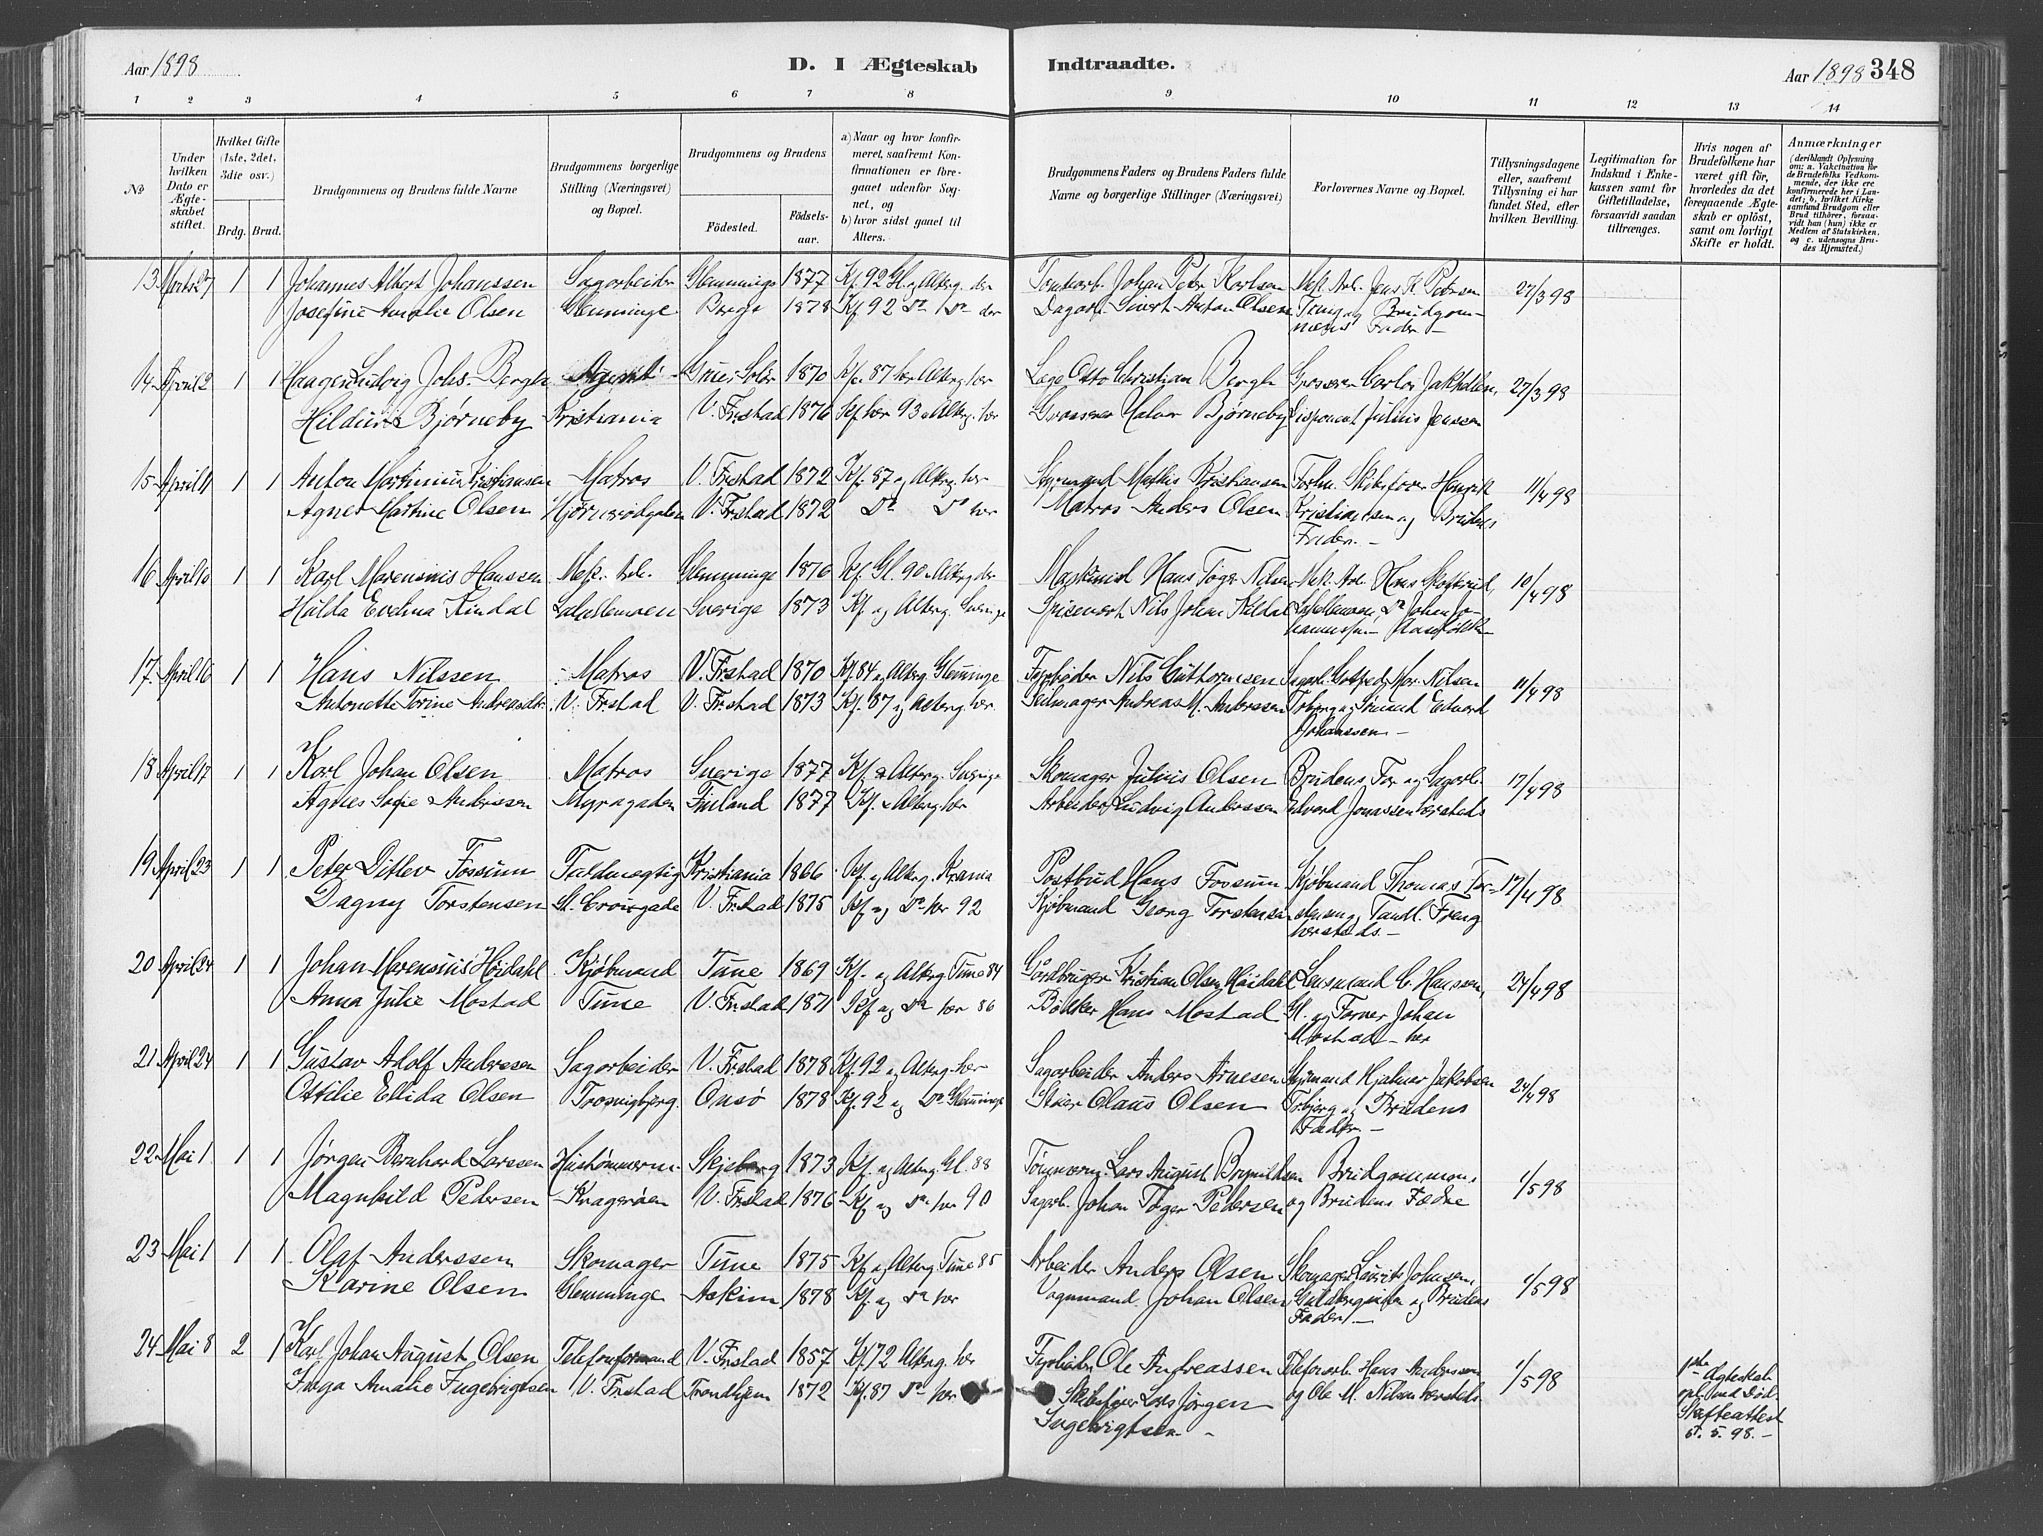 Aar 1898
D. I Ægteskab
Indtraadte.
Aar 1898 348
1 2 3 4 5 6 7 8 9 10 11 12 13 14
№
Under hvilken Dato er Ægteskabet stiftet.
Hvilket Gifte (1ste, 2det, 3die osv.)
Brdg. Brud.
Brudgommens og Brudens fulde Navne
Brudgommens borgerlige Stilling (Næringsvei) og Bopæl.
Brudgommens og Brudens
Fødested.
Fødselsaar.
a) Naar og hvor konfirmeret, saafremt Konfirmationen er foregaaet udenfor Sognet, og
b) hvor sidst gaaet til Alters.
Brudgommens Faders og Brudens Faders fulde Navne og borgerlige Stillinger (Næringsvei)
Forlovernes Navne og Bopæl.
Tillysningsdagene eller, saafremt Tillysning ei har fundet Sted, efter hvilken Bevilling.
Legitimation for Indskud i Enkekassen samt for Giftetilladelse, forsaavidt saadan tiltrænges.
Hvis nogen af Brudefolkene har været gift før, hvorledes da det foregaaende Ægteskab er opløst, samt om lovligt Skifte er holdt.
Anmærkninger
(deriblandt Oplysning om: a. Vakcination for de Brudefolks Vedkommende, der ikke ere konfirmerede her i Landet; b. hvilket Kirkesamfund Brudgom eller Brud tilhører, forsaavidt han (hun) ikke er Medlem af Statskirken, og c. udensogns Brudes Hjemsted.)
13 Marts 27 1 1 Johannes Albert Johanssen Sagarbeider Glemminge 1877 Kf. 92 Gl. og Alterg. der Tomtearb. Johan Peter Karlsen Mek. Arb. Jens K. Petersen 27/3 98
Josefine Amalie Olsen Glemminge Borge 1878 Kf. 92 Do Do der Dagarb. Sivert Anton Olsen og Brudgommens Fader –
14 April 2 1 1 Haagen Ludvig Johs. Bergh Agent Grue Solør 1870 Kf. 87 her Alterg. her Læge Otto Christian Bergh Grosserer Carlos Jakhelln, 27/3 98
Hildur Bjørneby Kristiania V. Frstad 1876 Kf. her 93 o Alterg. her Grosserer Halvor Bjørneby Disponent Julius Jenssen
15 April 11 1 1 Anton Martinius Kristiansen Matros V. Frstad 1872 Kf. 87 og Alterg. her Styrmand Mathis Kristiansen Forhv. Skibsfører Henrik 11/4 98
Agnes Martine Olsen Hjørnerødgaden V. Frstad 1872 Do Do her Matros Anders Olsen Kristiansen og Brudens
Fader. –
16 April 10 1 1 Karl Marensius Hanssen Mek. Arb. Glemminge 1876 Kf. Gl. 90 o Alterg. der Maskinist Hans Tøger Nilsen Mek. Arb. Hans Skofterud, 10/4 98
Hulda Evelina Kindal Labellemoen Sverige 1873 Kf. og Alterg. Sverige Spisevert Nils Johan Kildal Labellemoen, Do Johan Johannessen
17. April 16 1 1 Hans Nilssen Matros V. Frstad 1870 Kf. 84 og Alterg. Glemminge Fyrbøder Nils Guthormsen Sagarb. Gotfred Mar. Nilsen 11/4 98
Antonette Torine Andreasdtr. V. Frstad V. Frstad 1873 Kf. 87 og Alterg. her Seilmager Andreas M. Anderssen Torberg og Sømand Edvard
Johanssen –
18 April 17 1 1 Karl Johan Olsen Matros Sverige 1877 Kf. o Alterg. Sverige Skomager Julius Olsen Brudens Far og Sagarb. 17/4 98
Agnes Sofie Anderssen Myragaden Finland 1877 Kf. o Alterg. her Arbeider Ludvig Anderssen Edvard Jonassen hersteds
19 April 23 1 1 Peter Ditlev Fossum Fuldmegtig Kristiania 1866 Kf. og Alterg. Krania Postbud Hans Fossum Kjøbmand Thomas Tor- 17/4 98
Dagny Torstensen V. Frstad 1875 Kf. og Do her 92 Kjøbmand Georg Torstensen stensen og Tandl. Freng
hersteds. –
20 April 24 1 1 Johan Marensius Høidahl Kjøbmand Tune 1869 Kf. og Alterg. Tune 84 Gårdbruger Kristian Olsen Høidahl Lensmand C. Hanssen, 24/4 98
Anna Julie Mostad Tune V. Frstad 1871 Kf. og Do her 86 Bødker Hans Mostad Gl. og Farver Johan
Mostad – her
21 April 24 1 1 Gustav Adolf Andresen Sagarbeider V. Frstad 1878 Kf. 92 og Alterg. her Sagarbeider Anders Arnesen Styrmand Hjalmar Jakobsen 24/4 98
Ottilie Elida Olsen Trosvigbjerg. Onsø 1878 Kf. 92 og Do Glemminge Olaus Olsen Torbjerg og Brudens
Fader. –
22 Mai 1 1 1 Jørgen Bernhard Larssen Hustømmerm. Skjeberg 1873 Kf. og Alterg. Gl. 88 Tømmerm. Lars August Brynildsen Brudgommens 1/5 98
Magnhild Pedersen Kragerøen V. Frstad 1876 Kf. og Do her 90 Sagarb. Johan Tøger Pedersen og Brudens Fædre
23 Mai 1 1 1 Olaf Anderssen Skomager Tune 1875 Kf. og Alterg. Tune 85 Arbeider Anders Olsen Skomager Laurits Johnsen, 1/5 98
Karine Olsen Glemminge Askim 1878 Kf. og Do her Vognmand Johan Olsen og Brudens
Fader –
24 Mai 8 2 1 Karl Johan August Olsen Telefonformand V. Frstad 1857 Kf. 72 Alterg. her Fyrbøder Ole Andreassen Telefonarb. Hans Anderssen 1/5 98 Ægteskab
Inga Amalie Ingebrigtsen V. Frstad Trondhjem 1872 Kf. 87 Do her Skibsfører Lars Jørgen og Ole M. Nilsen hersteds opl. ved Død.
Ingebrigtsen. – Skifteattest
5. 98. –